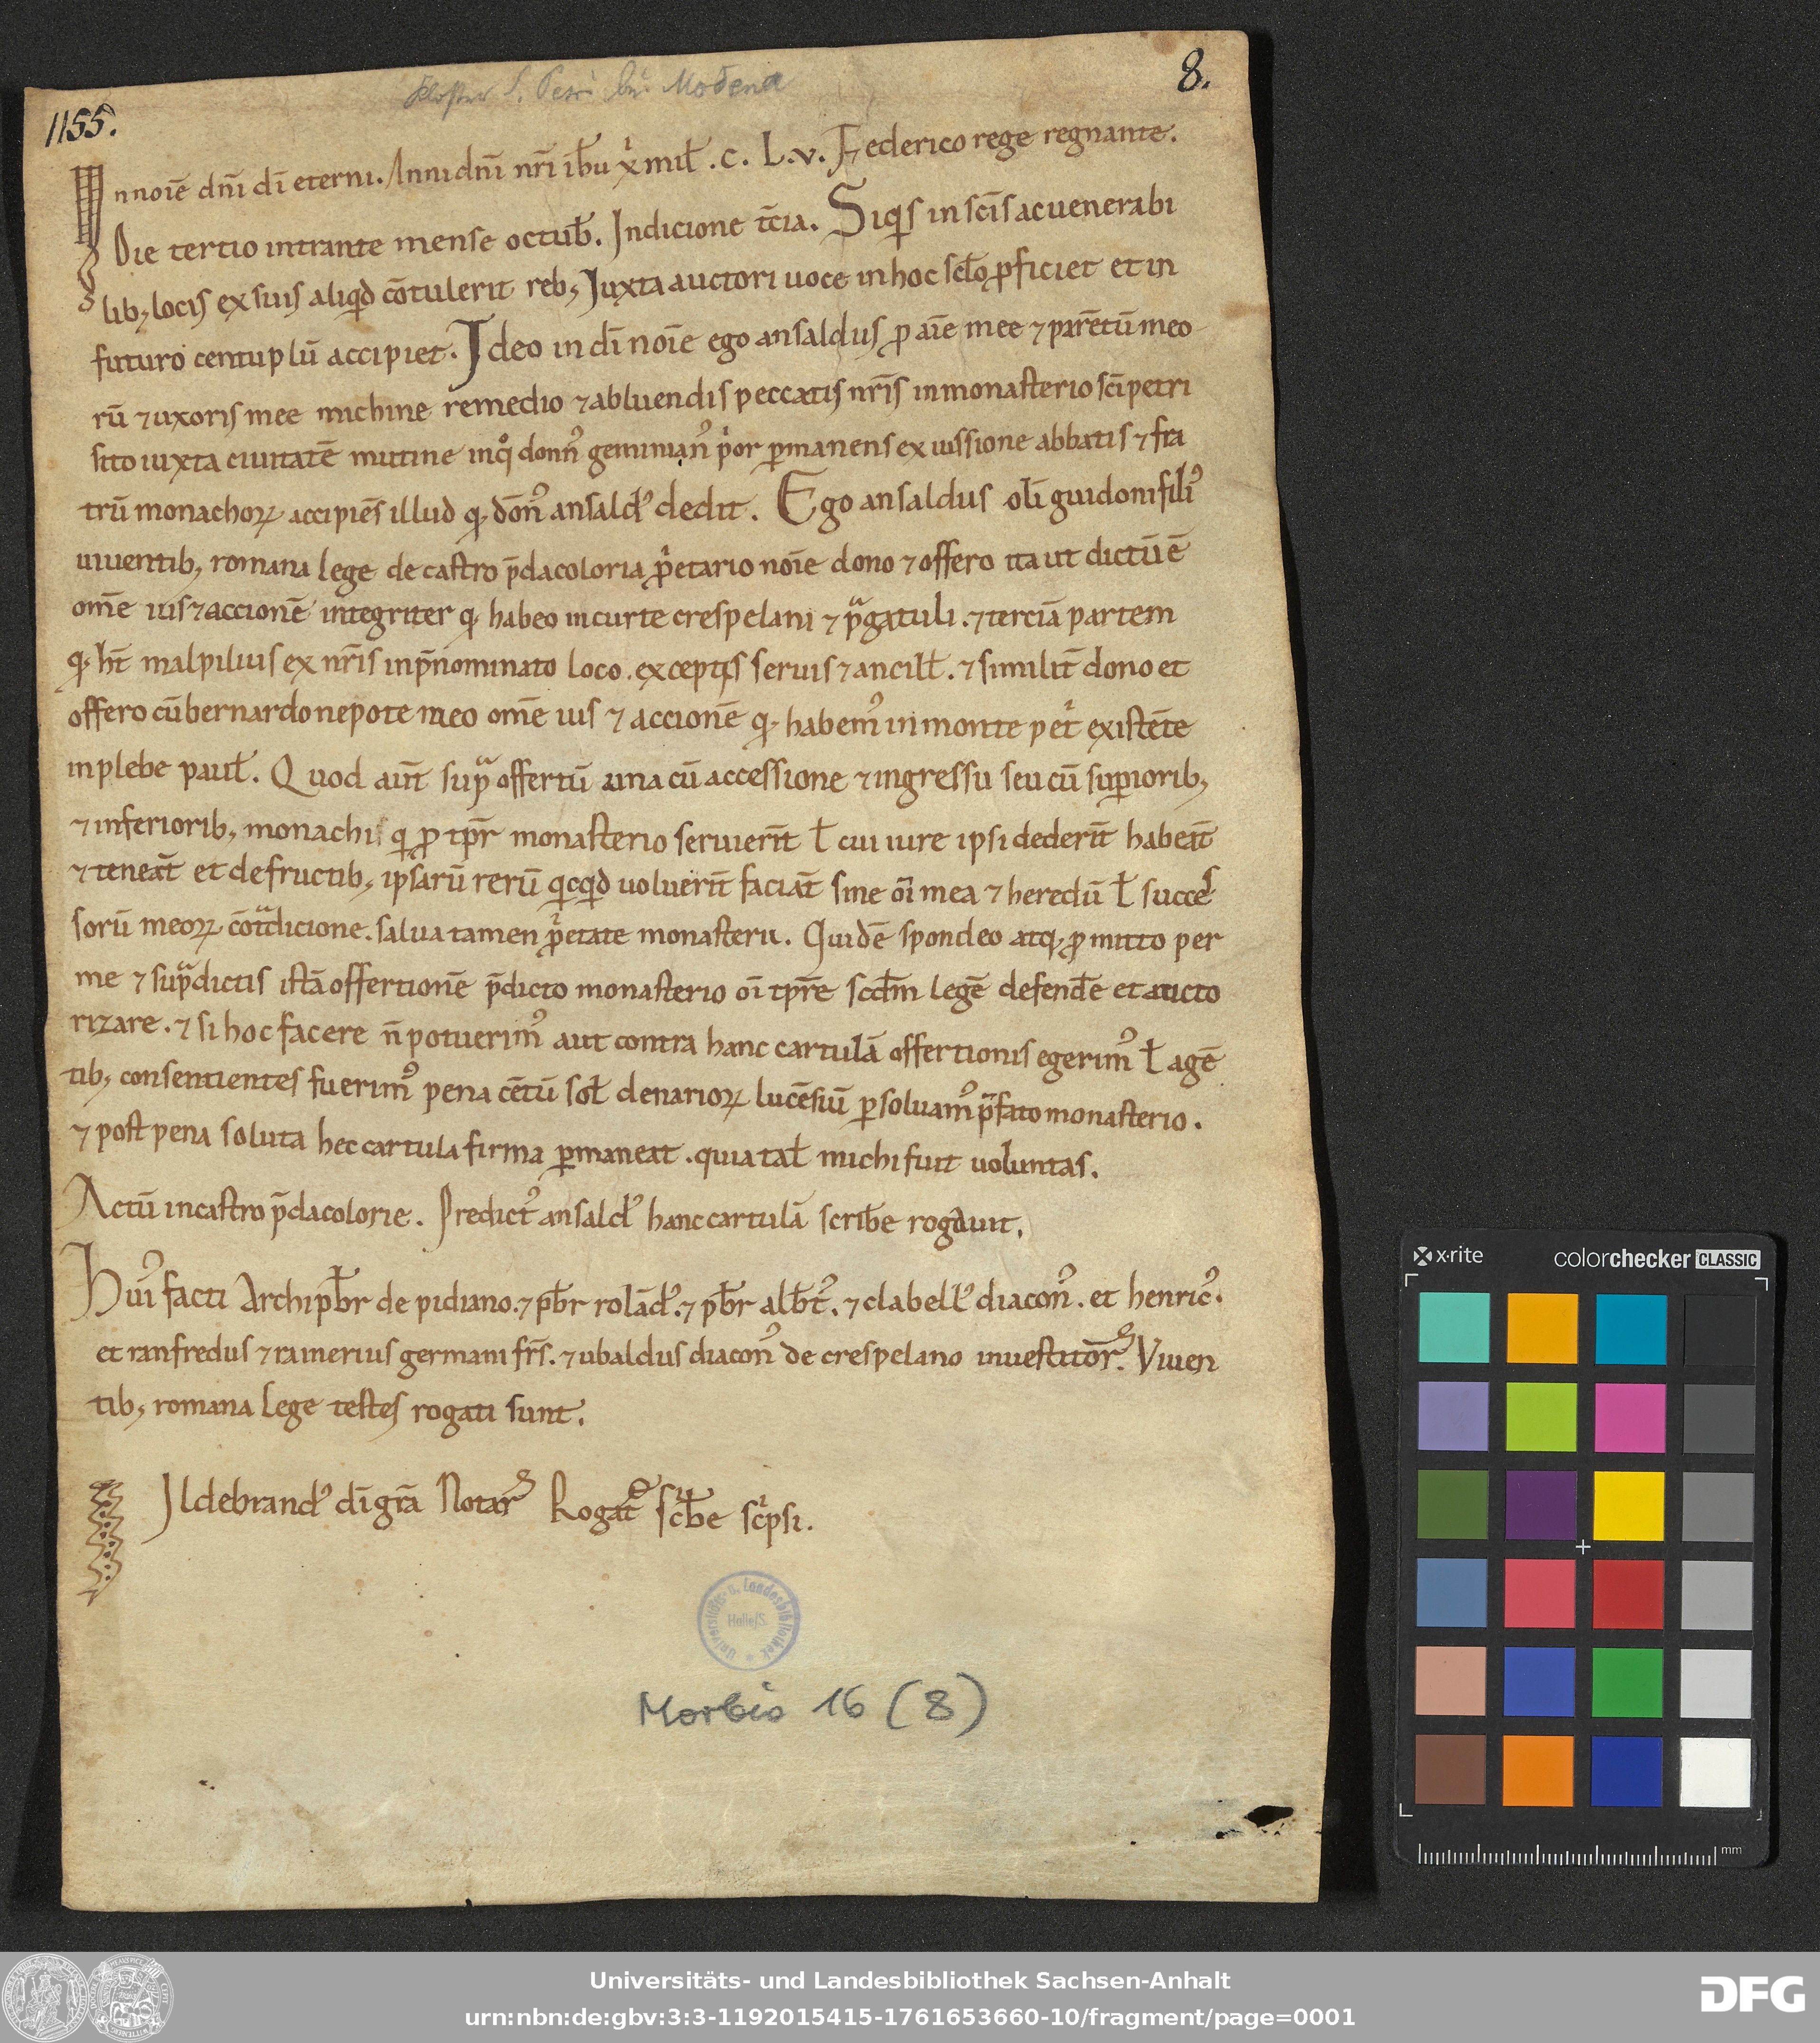 Kloster S. Petri bei Modena
8.
1155.
In noīe dn̄i dī eterni. Anni dn̄i nr̄i ih̄u xp̄i mił. c. L. v. Federico rege regnante.
Die tertio intrante mense octub̄. Indicione tc̄ia. Siqͥs in scīs ac uenerabi
lib; locis ex suis aliqͥd cōtulerit reb; Juxta auctori uoce in hoc sclo ꝓficiet et in
futuro centuplū accipiet. Ideo in dī noīe ego ansaldus ꝓ aīe mee ⁊ parētū meo
rū ⁊ uxoris mee michine remedio ⁊ abluendis peccatis nr̄is in monasterio scī petri
sito iuxta ciuitatē mutine in qͦ donn᾽ geminian᾽ pͥor ꝑmanens ex iussione abbatis ⁊ fra
trū monachoꝝ accipiēs illud qꝫ dōn᾽ ansald᾽ dedit. Ego ansaldus olī guidoni fili᾽
uiuentib; romana lege de castro p̄dacoloria ꝓpͥetario noīe dono ⁊ offero ita ut dictū ē
om̄e ius ⁊ accionē integriter qꝫ habeo in curte crespelani ⁊ pͣgatuli. ⁊ terciā partem
qꝫ ht̄ malpilius ex nr̄is in p̄nominato loco. exceptis seruis ⁊ ancill. ⁊ similit̄ dono et
offero cū bernardo nepote meo om̄e ius ⁊ accionē qꝫ habem᾽ in monte petͥ existēte
in plebe paul. Quod aut̄ supͣ offertū una cū accessione ⁊ ingressu seu cū supiorib;
⁊ inferiorib; monachi qͥ ꝓ tp̄r monasterio seruierīt ł cui iure ipsi dederīt habeāt
⁊ teneāt et de fructib; ipsarū rerū qͥcqͥd uoluerīt faciāt sine oī mea ⁊ heredū ł succes
sorū meoꝝ cōtͣdicione. salua tamen ꝓpͥetate monasterii. Quidē spondeo atqꝫ ꝓmitto per
me ⁊ supͣdictis istā offertionē p̄dicto monasterio oī tp̄re scd̄m legē defend̄e et aucto
rizare. ⁊ si hoc facere n̄ potuerim᾽ aut contra hanc cartulā offertionis egerim᾽ ł agē
tib; consentientes fuerim᾽ pena cētū sol denarioꝝ lucēsiū ꝑsoluam᾽ pͣfato monasterio.
⁊ post pena soluta hec cartula firma ꝑmaneat. quia tal michi fuit uoluntas.
Actū in castro p̄dacolorie. Predict᾽ ansald᾽ hanc cartulā scrib̄e rogauit.
Hui᾽ facti Archipb̄r de pidiano. ⁊ pb̄r rolād᾽. ⁊ pb̄r alb̄t᾽. ⁊ clabell᾽ diacon᾽. et henric᾽.
et ranfredus ⁊ rainerius germani fr̄s. ⁊ ubaldus diacon᾽ de crespelano inuestitōr. Viuen
tib; romana lege testes rogati sunt.
Ildebrand᾽ dī gr̄a Notar᾽ Rogat᾽ scͥb̄e scͥpsi.
Universitäts- u. Landesbibliothek
Halle/S.
Morbio 16 (8)
x·rite colorchecker CLASSIC
mm
Universitäts- und Landesbibliothek Sachsen-Anhalt
urn:nbn:de:gbv:3:3-1192015415-1761653660-10/fragment/page=0001
DFG